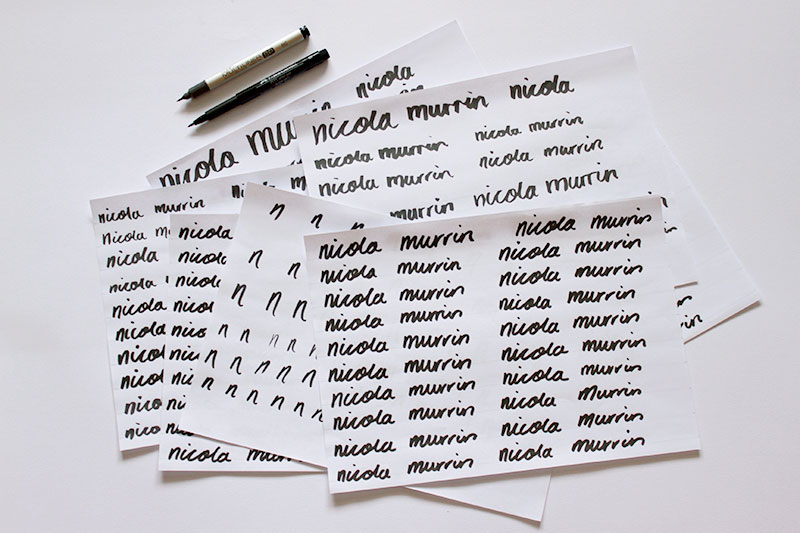 nicola
nicola
nicola murrin nicola
nicola murrin nicola murrin
nicola murrin nicola murrin
murrin nicola murrin
nicola murrin
nicola
nicola
nicola
nicola
nicola
nicola
nicola
nicola
nicola
nicola
nicola
n n
n n
n n n
n n n n
n n n n
n n n n n
nicola murrin nicola murrin
nicola murrin nicola murrin
nicola murrin nicola murrin
nicola murrin nicola murrin
nicola murrin nicola murrin
nicola murrin nicola murrin
nicola murrin nicola murrin
nicola murrin nicola murrin
nicola murrin nicola murrin
nicola murrin nicola murrin